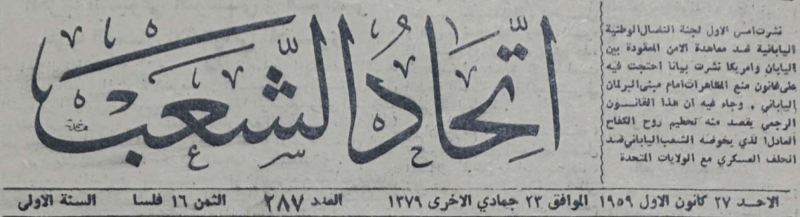 اتحاد الشعب
نشرت امس الاول لجنة النضال الوطنية
اليابانية ضد معاهدة الامن المعقودة بين
اليابان وامريكا نشرت بيانا احتجت فيه
على قانون منع المظاهرات امام مبنى البرلمان
الياباني . وجاء فيه ان هذا القانون
الرجعي يقصد منه تحطيم روح الكفاح
العادل الذي يخوضه الشعب الياباني ضد
الحلف العسكري مع الولايات المتحدة
الاحد ٢٧ كانون الاول ١٩٥٩ الموافق ٢٣ جمادي الاخرى ١٣٧٩ العدد ٢٨٧ الثمن ١٦ فلسا السنة الاولى